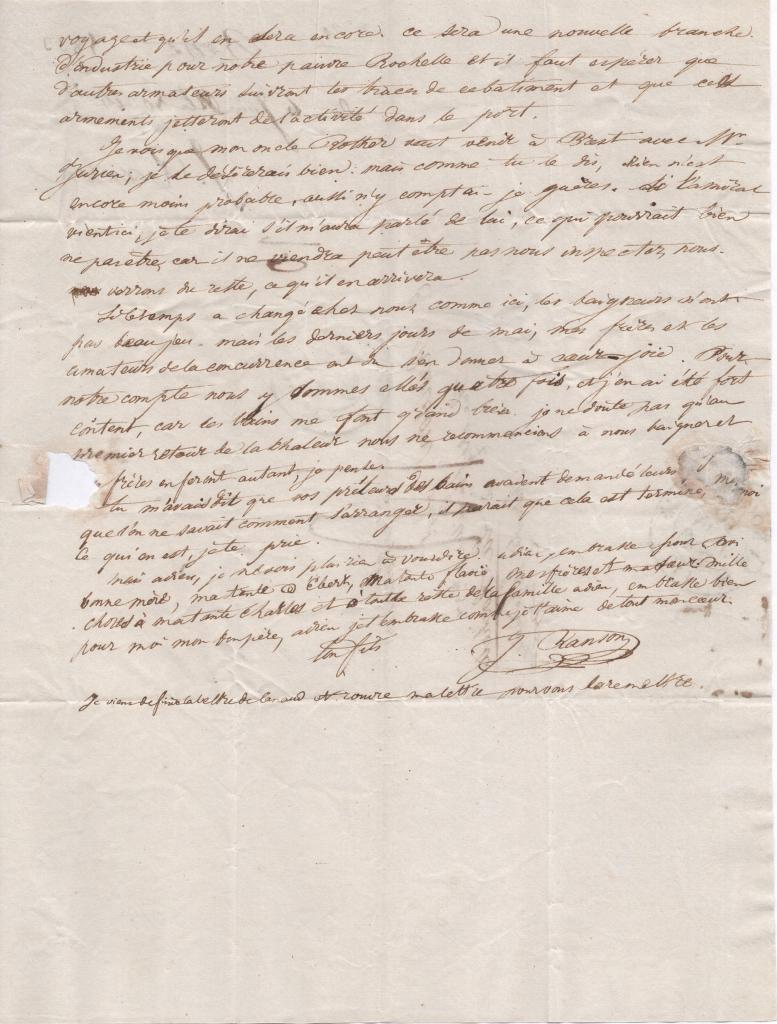 voyage et qu'il en sera encore. ce sera une nouvelle branche
d'industrie pour notre pauvre Rochelle et il faut espérer que
d'autres armateurs suivront les traces de ce batiment et que ces
armements jetteront de l'activité dans le port.
Je vois que mon oncle Rother veut venir à Brest avec Mr
Jurien, je le désirerais bien: mais comme tu le dis, rien n'est
encore moins probable, aussi n'y comptai-je guères. Si l'amiral
vient ici, je te dirai s'il m'aura parlé de lui, ce qui pourrait bien
ne pas être, car il ne viendra peut être pas nous inspecter, nous
verrons du reste, ce qu'il en arrivera.
Si le temps a changé chez nous comme ici, les baigneurs n'ont
pas beau jeu. mais les derniers jours de mai, mes frères et les
amateurs de la concurrence ont du s'en donner à coeur joie. Pour
notre compte nous y sommes allés quatre fois, et j'en ai été fort
content, car les bains me font grand bien. je ne doute pas qu'au
premier retour de la chaleur nous ne recommencions à nous baigner et
frères en feront autant, je pense.
tu m'avais dit que vos prêteurs des bains avaient demandé leurs
que l'on ne savait comment s'arranger, il parait que cela est terminé,
ce qu'il en est, je te prie.
mais adieu, je ne vois plus rien à vous dire. adieu, embrasse pour moi
bonne mère, ma tante, ma tante mes frères et ma soeur. mille
choses à ma tante Charles et à toute reste de la famille adieu, embrasse bien
pour moi mon bon père, adieu je t'embrasse comme je t'aime de tout mon coeur.
ton fils
J Ranson
Je viens de finir la lettre de et rouvre ma lettre pour vous la remettre.